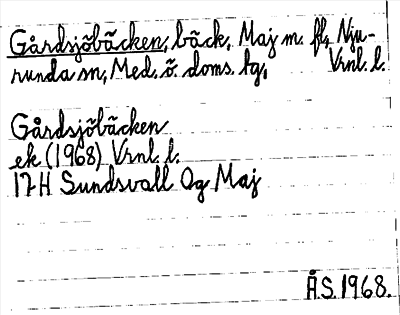 Gårdsjöbäcken, bäck, Maj m. fl., Nju-
runda sn, Med. ö. doms. tg, Vrnl. l.
Gårdsjöbäcken
ek (1968) Vrnl. l.
17H Sundsvall Og Maj
ÅS. 1968.